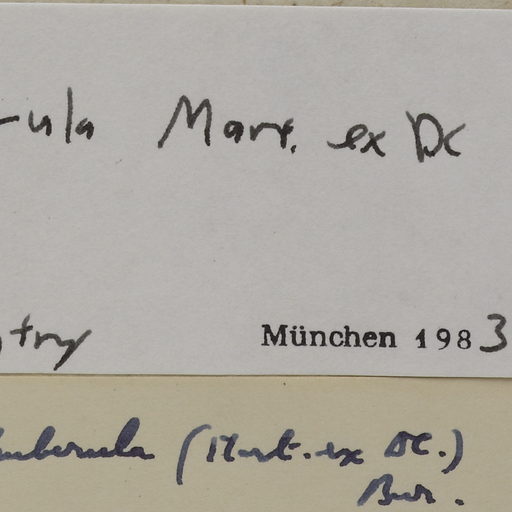 rula Mart. ex DC
try München 1983
puberula (Mart. ex DC.)
Bur.